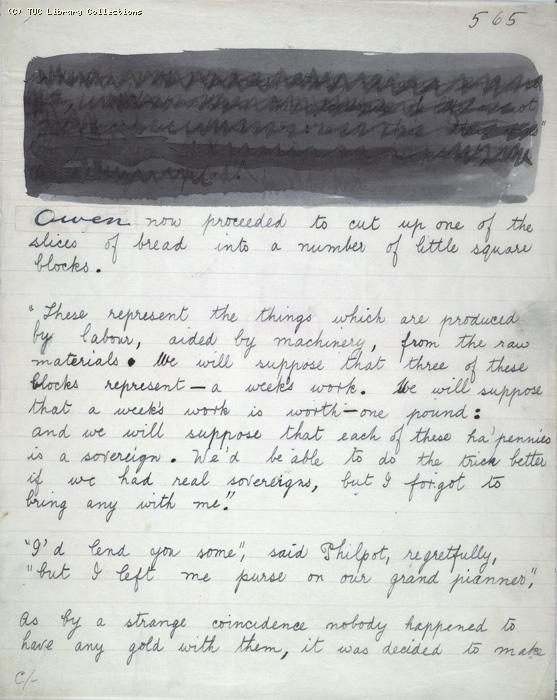 (C) TUC Library Collections
565
Owen now proceeded to cut up one of the
slices of bread into a number of little square
blocks.
"These represent the things which are produced
by labour, aided by machinery, from the raw
materials. We will suppose that three of these
blocks represent — a week's work. We will suppose
that a week's work is worth — one pound:
and we will suppose that each of these ha'pennies
is a sovereign. We'd be able to do the trick better
if we had real sovereigns, but I forgot to
bring any with me."
"I'd lend you some", said Philpot, regretfully,
"but I left me purse on our grand pianner",
As by a strange coincidence nobody happened to
have any gold with them, it was decided to make
C/-